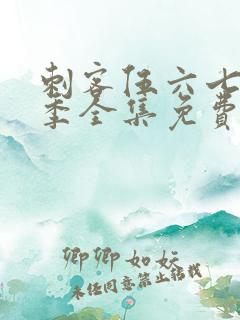 刺客伍六七
季全集免费
卿卿如妧
未经同意禁止转载